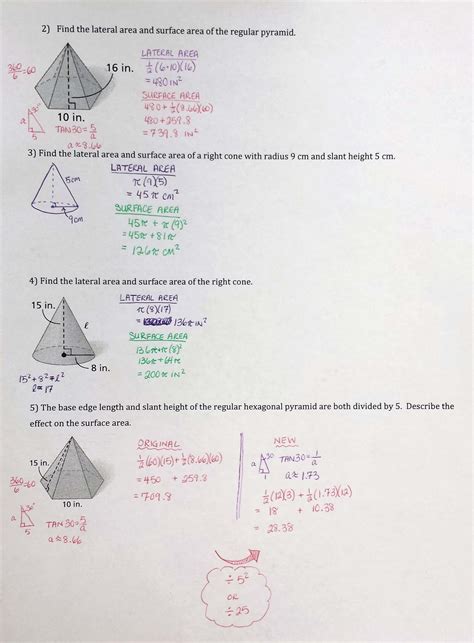 2) Find the lateral area and surface area of the regular pyramid.
360/6 = 60
16 in.
10 in.
30°
a
5
TAN30 = 5/a
a ≈ 8.66
LATERAL AREA
½(6·10)(16)
= 480 IN²
SURFACE AREA
480 + ½(8.66)(60)
480 + 259.8
= 739.8 IN²
3) Find the lateral area and surface area of a right cone with radius 9 cm and slant height 5 cm.
5cm
9cm
LATERAL AREA
π(9)(5)
= 45π cm²
SURFACE AREA
45π + π(9)²
= 45π + 81π
= 126π cm²
4) Find the lateral area and surface area of the right cone.
15 in.
ℓ
8 in.
15² + 8² = ℓ²
ℓ = 17
LATERAL AREA
π(8)(17)
= 136π IN²
SURFACE AREA
136π + π(8)²
136π + 64π
= 200π IN²
5) The base edge length and slant height of the regular hexagonal pyramid are both divided by 5. Describe the
effect on the surface area.
15 in.
10 in.
360/6 = 60
30°
a
5
TAN30 = 5/a
a ≈ 8.66
ORIGINAL
½(60)(15) + ½(8.66)(60)
= 450 + 259.8
= 709.8
NEW
a
30
1
TAN30 = 1/a
a ≈ 1.73
½(12)(3) + ½(1.73)(12)
= 18 + 10.38
= 28.38
÷ 5²
OR
÷ 25